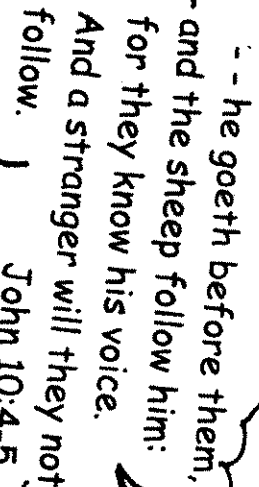 -- he goeth before them,
and the sheep follow him:
for they know his voice.
And a stranger will they not
follow.
John 10:4-5